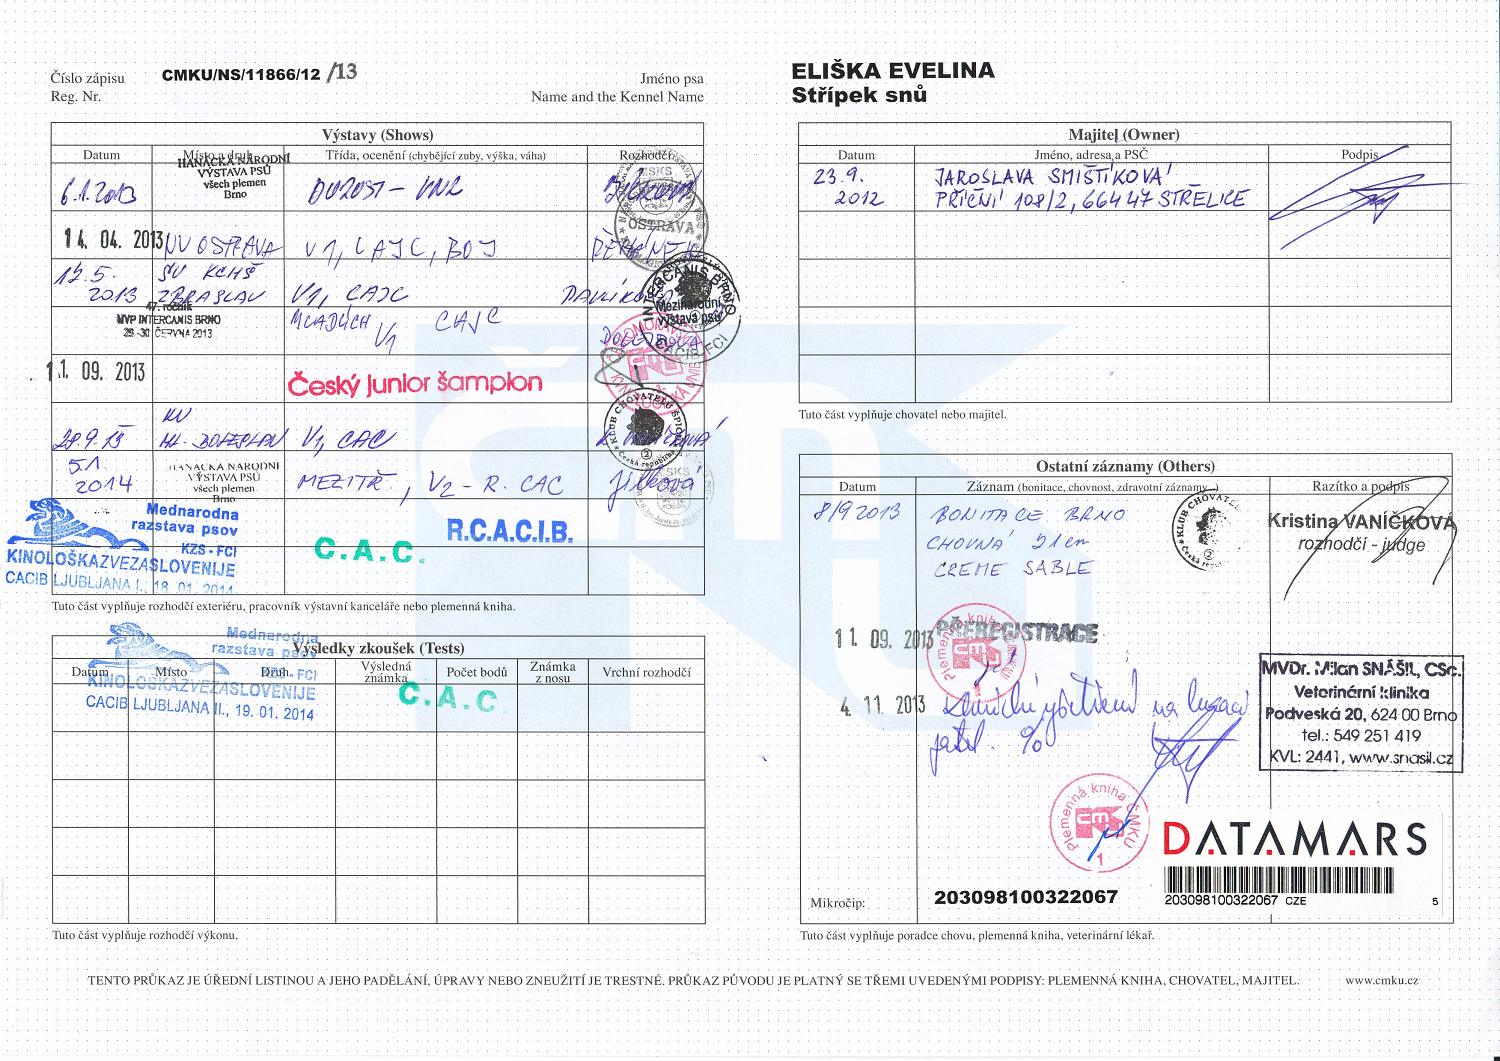 Číslo zápisu CMKU/NS/11866/12 /13 Jméno psa
Reg. Nr. Name and the Kennel Name
ELIŠKA EVELINA
Střípek snů
Výstavy (Shows)
Datum Místo a druh Třída, ocenění (chybějící zuby, výška, váha) Rozhodčí
HANÁCKÁ NÁRODNÍ
VÝSTAVA PSŮ
všech plemen
Brno
6.1.2013 DOROST - VN1
OSTRAVA
14. 04. 2013 NV OSTRAVA V1, CAJC, BOJ
12.5. SV KCHŠ
2013 ZBRASLAV V1, CAJC
INTERCANIS BRNO
Mezinárodní
výstava psů
CACIB FCI
47. ročník
MVP INTERCANIS BRNO
29.-30. ČERVNA 2013
MLADÝCH V1 CAJC
11. 09. 2013 Český junior šampion
KV
28.9.13 V1, CAC
KLUB CHOVATELŮ ŠPICŮ
Česká republika
5.1.
2014
HANÁCKÁ NÁRODNÍ
VÝSTAVA PSŮ
všech plemen
Brno
MEZITŘ., V2 - R. CAC Jílková
Mednarodna
razstava psov
KZS - FCI
KINOLOŠKA ZVEZA SLOVENIJE
CACIB LJUBLJANA I., 18. 01. 2014
C.A.C. R.C.A.C.I.B.
Tuto část vyplňuje rozhodčí exteriéru, pracovník výstavní kanceláře nebo plemenná kniha.
Výsledky zkoušek (Tests)
Datum Místo Druh Výsledná známka Počet bodů Známka z nosu Vrchní rozhodčí
Mednarodna
razstava psov
KZS - FCI
KINOLOŠKA ZVEZA SLOVENIJE
CACIB LJUBLJANA II., 19. 01. 2014
C.A.C.
Tuto část vyplňuje rozhodčí výkonu.
Majitel (Owner)
Datum Jméno, adresa a PSČ Podpis
23.9. JAROSLAVA SMIŠTÍKOVÁ
2012 PŘÍČNÍ 108/2, 664 47 STŘELICE
Tuto část vyplňuje chovatel nebo majitel.
Ostatní záznamy (Others)
Datum Záznam (bonitace, chovnost, zdravotní záznamy...) Razítko a podpis
8/9 2013 BONITACE BRNO
CHOVNÁ 21cm
CREME SABLE
KLUB CHOVATEL
Kristina VANÍČKOVÁ
rozhodčí - judge
11. 09. 2013 PŘEREGISTRACE
Plemenná kniha ČMKU
1
4. 11. 2013 Klinické vyšetření na luxaci
patel. 0/0
MVDr. Milan SNÁŠIL, CSc.
Veterinární klinika
Podveská 20, 624 00 Brno
tel.: 549 251 419
KVL: 2441, www.snasil.cz
Plemenná kniha ČMKU
1
DATAMARS
203098100322067 CZE 5
Mikročip: 203098100322067
Tuto část vyplňuje poradce chovu, plemenná kniha, veterinární lékař.
TENTO PRŮKAZ JE ÚŘEDNÍ LISTINOU A JEHO PADĚLÁNÍ, ÚPRAVY NEBO ZNEUŽITÍ JE TRESTNÉ. PRŮKAZ PŮVODU JE PLATNÝ SE TŘEMI UVEDENÝMI PODPISY: PLEMENNÁ KNIHA, CHOVATEL, MAJITEL. www.cmku.cz